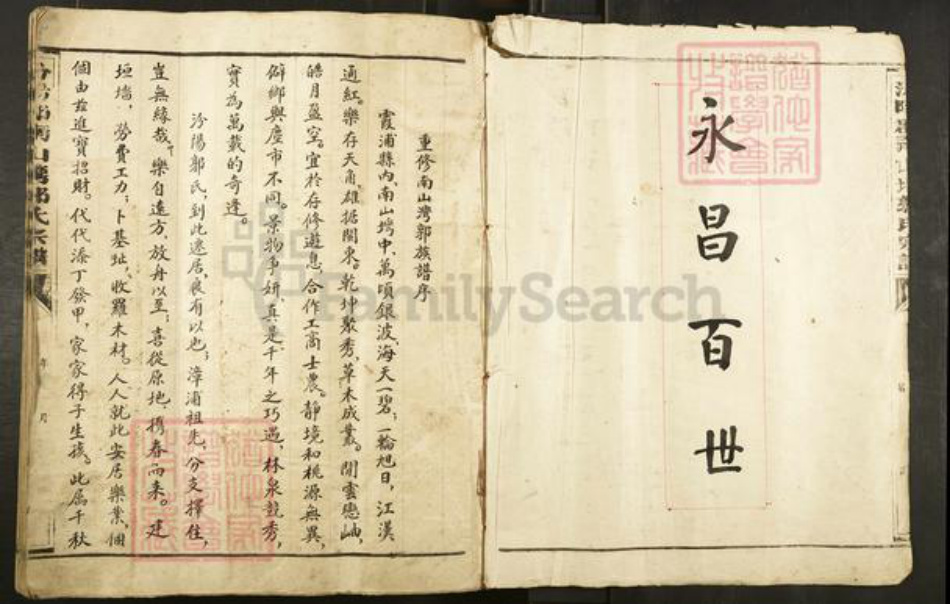 永昌百世
重修南山灣郭族譜序
霞浦縣內、南山塆中、萬頃銀波、海天一碧；一輪旭日，江漢
通紅。樂存天角、雄據閩東。乾坤聚秀、草木成叢。閒雲戀岫、
皓月盈空。宜於存修遊息、合作工商士農。靜境和桃源無異、
僻鄉與塵市不同。景物爭妍、真是千年之巧遇，林泉競秀，
實為萬載的奇逢。
汾陽郭氏、到此遷居、良有以也；漳浦祖先、分支擇住，
豈無緣哉。樂自遠方、放舟以至；喜從原地、携眷而来。建
垣墙，勞費工力；卜基址、收羅木材。人人就此安居樂業，個
個由玆進寶招財。代代添丁發甲，家家得子生孩。此属千秋
FamilySearch